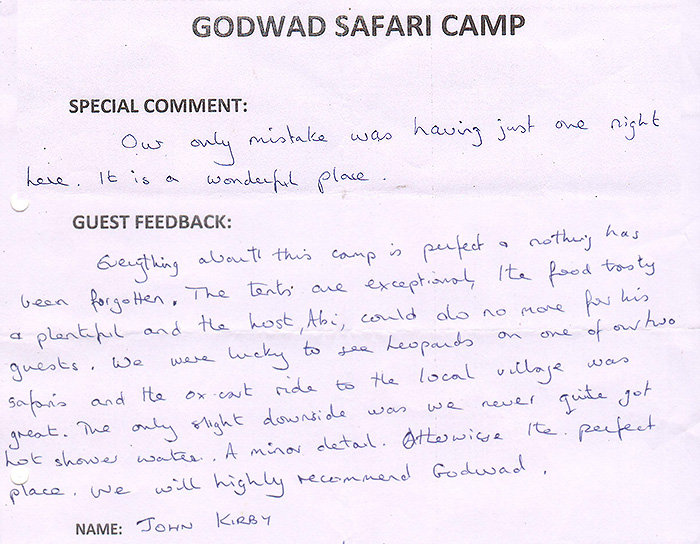 GODWAD SAFARI CAMP
SPECIAL COMMENT:
Our only mistake was having just one night
here. It is a wonderful place.
GUEST FEEDBACK:
Everything about this camp is perfect & nothing has
been forgotten. The tents are exceptional, the food tasty
& plentiful and the host, Abi, could do no more for his
guests. We were lucky to see leopards on one of our two
safaris and the ox-cart ride to the local village was
great. The only slight downside was we never quite got
hot shower water. A minor detail. Otherwise the perfect
place. We will highly recommend Godwad.
NAME: JOHN KIRBY